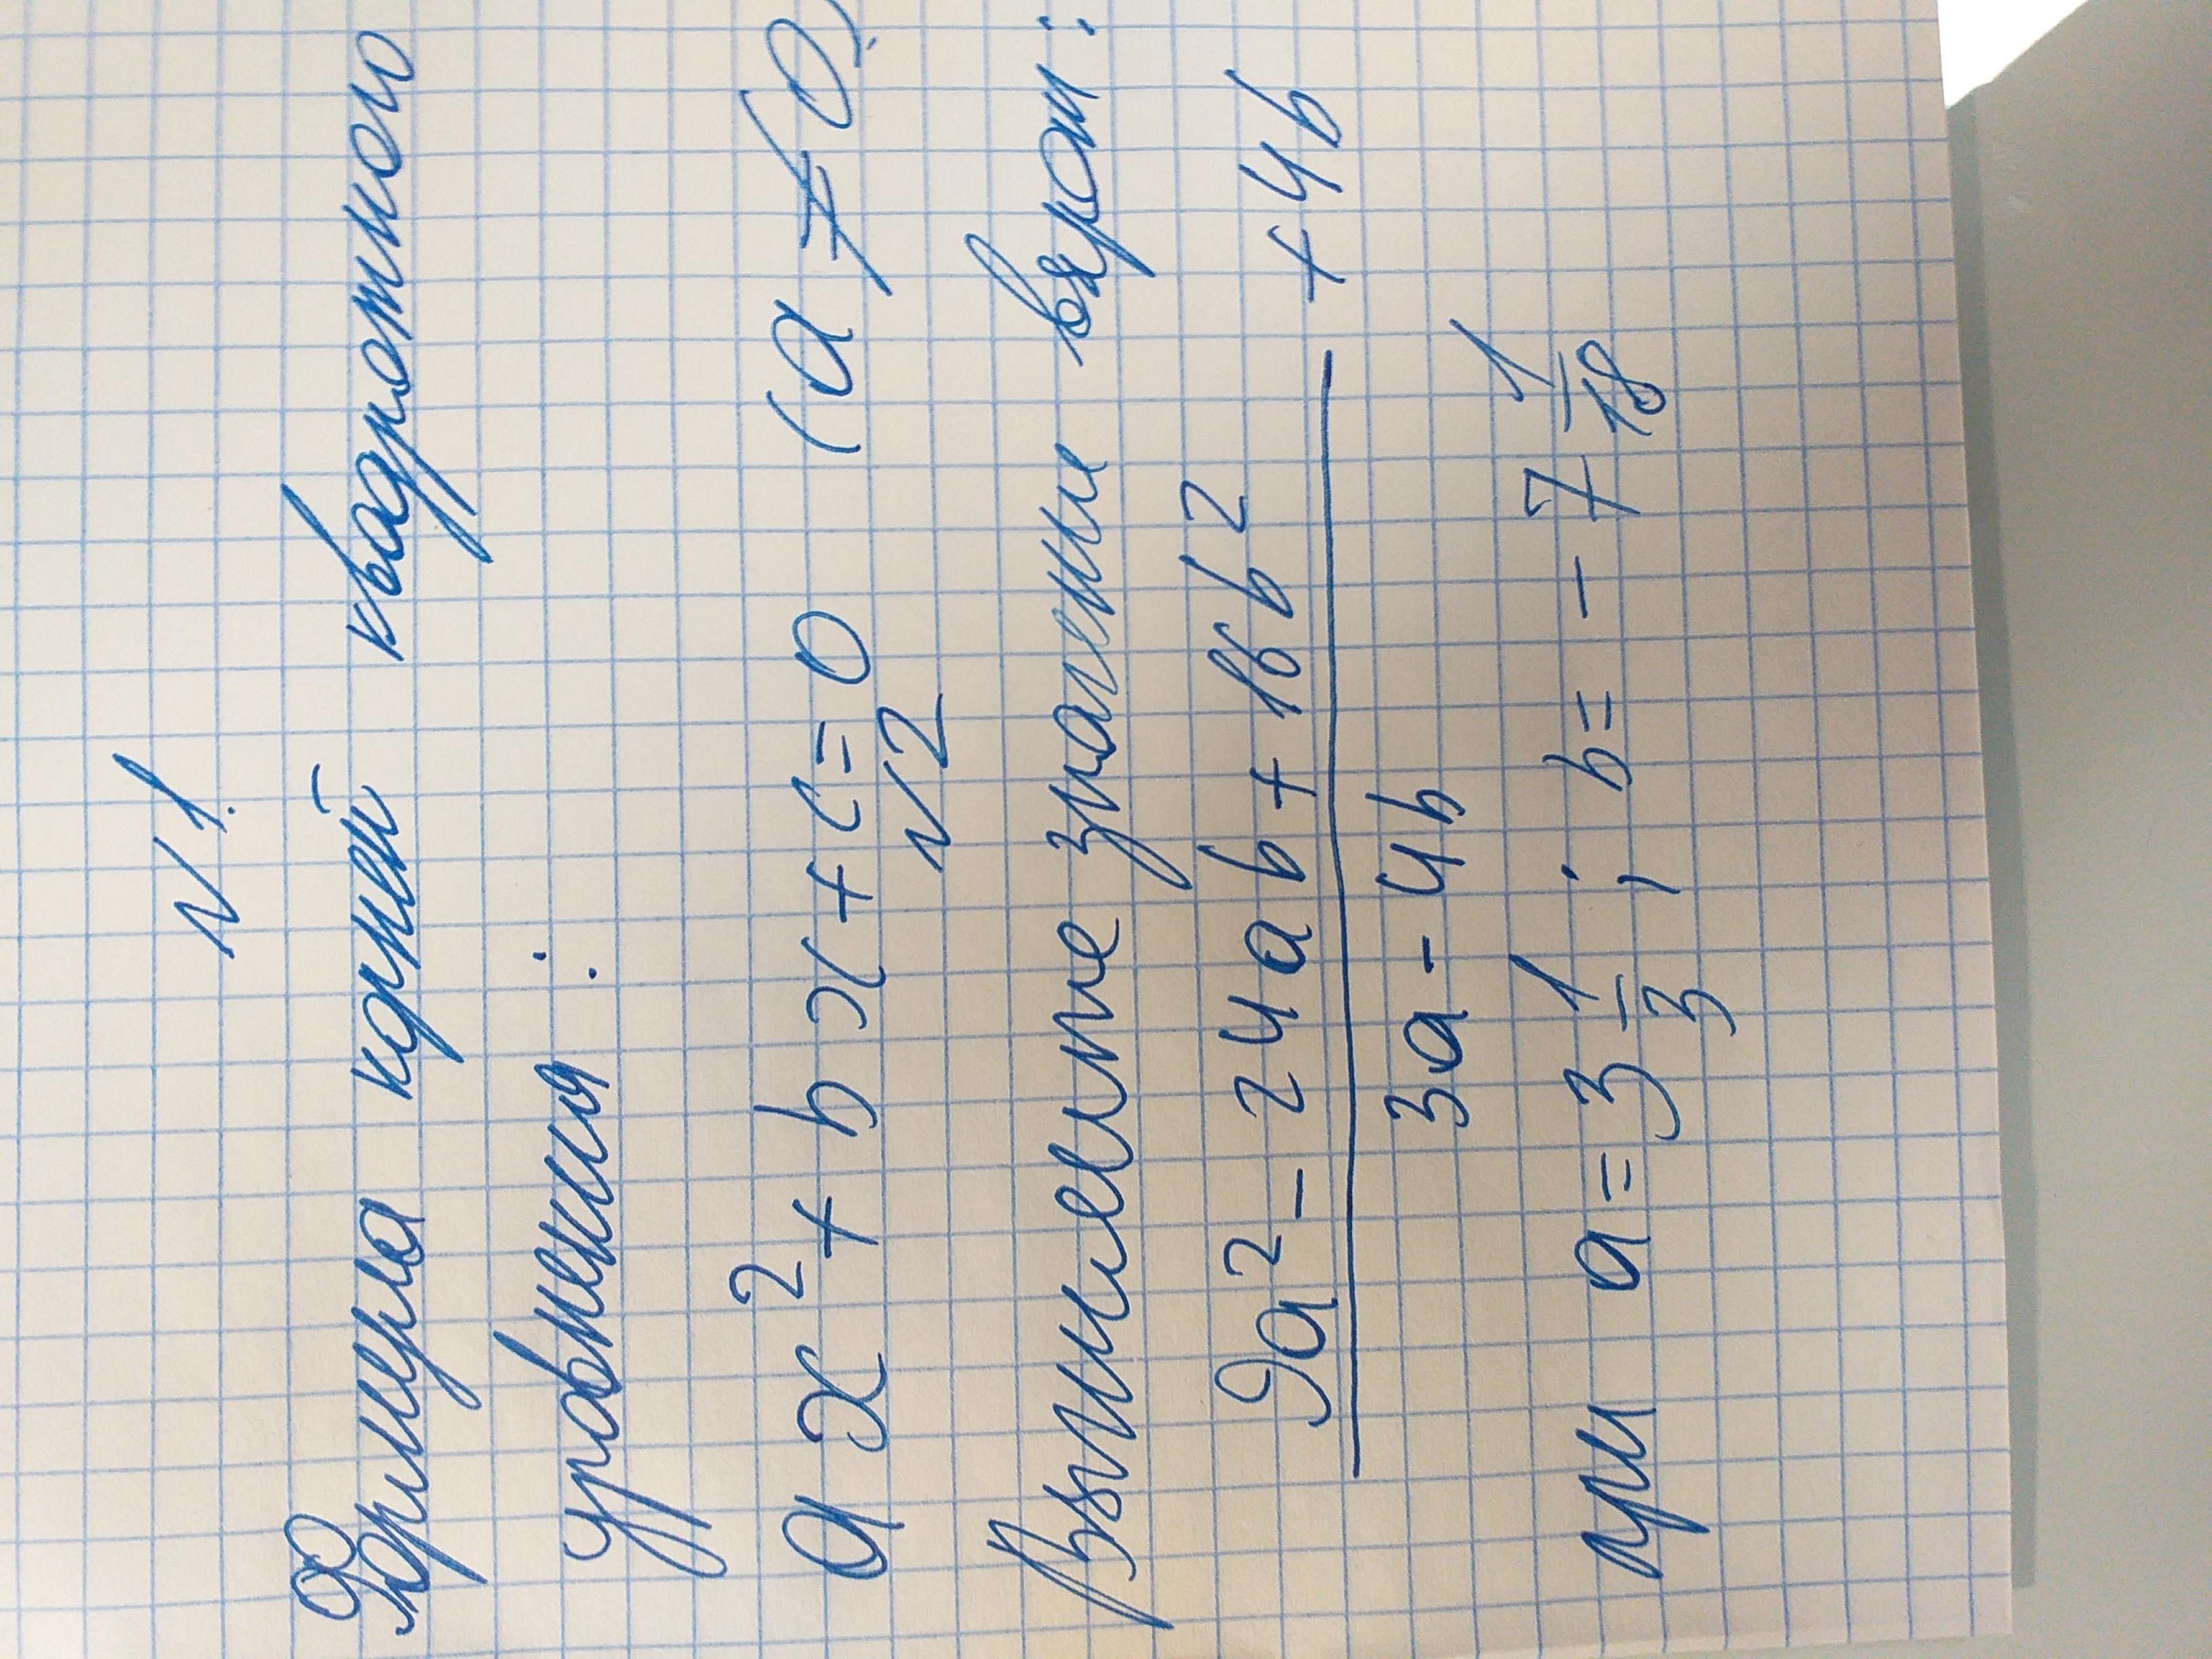 N 1.
Формула корней квадратного
уравнения:
ax² + bx + c = 0 (a ≠ 0)
N 2
Вычислите значение выраж:
9a² - 24ab + 16b² + 4b
3a - 4b
при a = 3 1/3; b = - 7 1/18